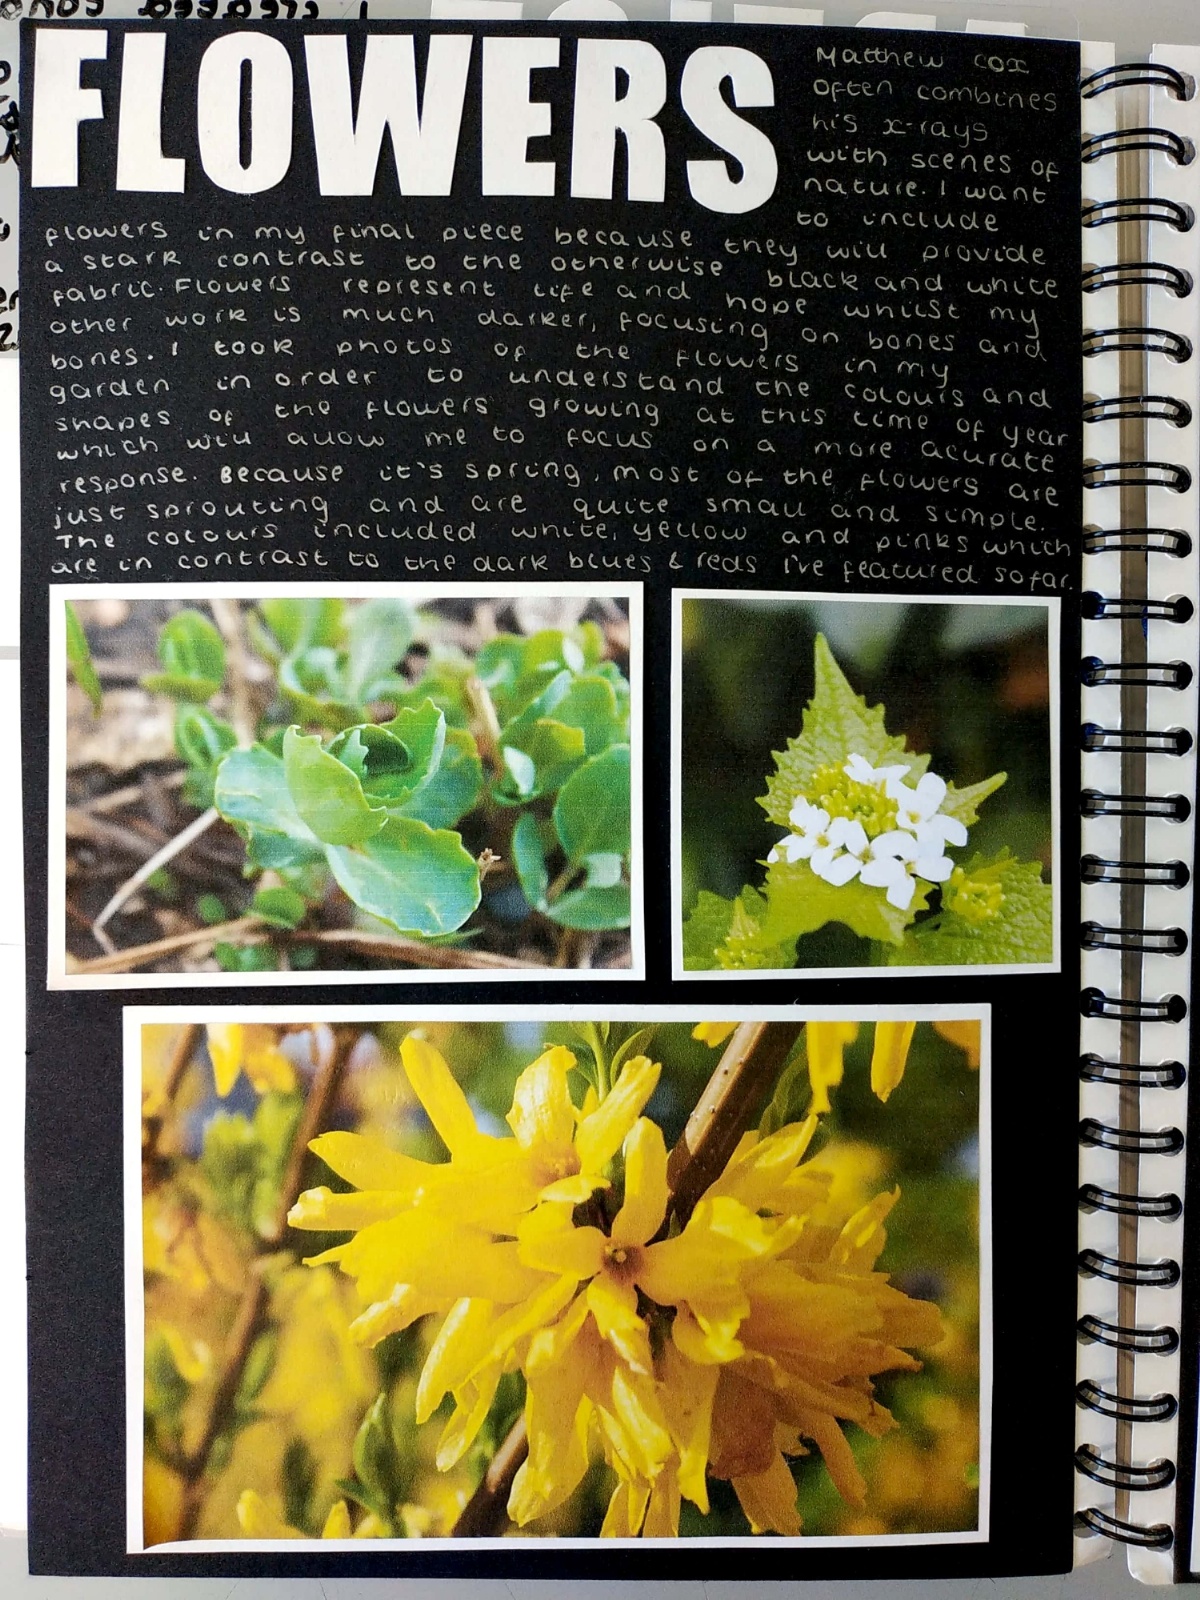 FLOWERS
Matthew cox
often combines
his x-rays
with scenes of
nature. I want
to include
flowers in my final piece because they will provide
a stark contrast to the otherwise black and white
fabric. Flowers represent life and hope whilst my
other work is much darker, focusing on bones and
bones. I took photos of the flowers in my
garden in order to understand the colours and
shapes of the flowers growing at this time of year
which will allow me to focus on a more acurate
response. Because it's spring, most of the flowers are
just sprouting and are quite small and simple.
The colours included white, yellow and pinks which
are in contrast to the dark blues & reds I've featured so far.